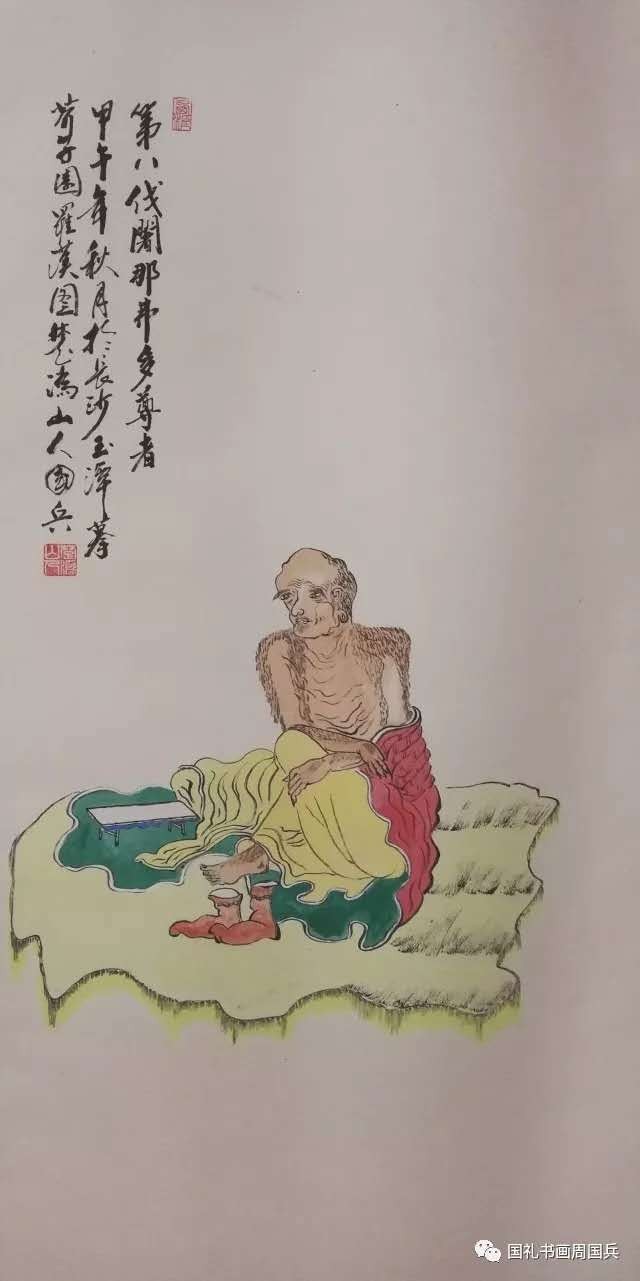 第八伐闍那弗多尊者
甲午年秋月於長沙玉潭摹
芥子園羅漢图楚溈山人国兵
国礼书画周国兵